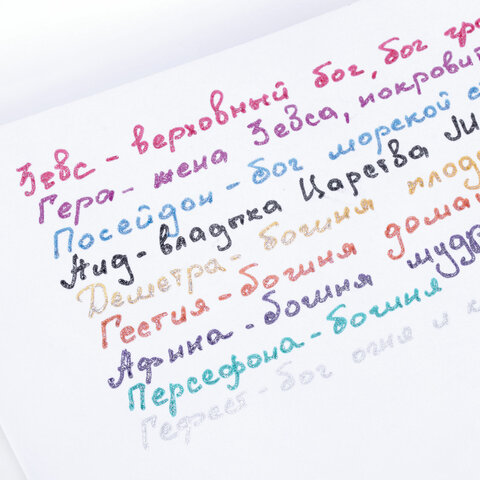 Зевс - верховный бог, бог
Гера - жена Зевса,
Посейдон - бог морской
Аид - владыка Царства
Деметра - богиня
Гестия - богиня
Афина - богиня
Персефона - богиня
Гефест - бог огня и